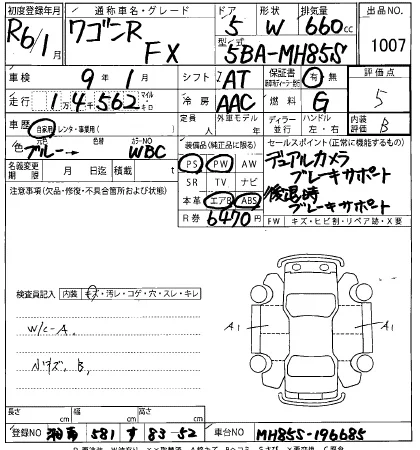 初度登録年月 通称車名・グレード ドア 形状 排気量 出品NO
R6/1月 ワゴンR FX 5 W 660cc 1007
型/式 5BA-MH85S
車検 9年1月 シフト AT 保証書 有 無 評価点
走行 1万4千562 マイル キロ 冷房 AAC 燃料 G 5
車歴 自家用・レンタ・事業用( ) 定員 人 外車モデル 年 ディーラー 並行 ハンドル 左・右 内装評価 B
色 元色 ブルー → 色替 カラーNO WBC
装備品(純正品に限る) セールスポイント(正常に機能するもの)
名義変更期限 月 日迄 積載 t PS PW AW デュアルカメラ
ブレーキサポート
注意事項(欠品・修復・不具合箇所および状態) SR TV ナビ 後退時
本革 エアB ABS ブレーキサポート
R券 6470円 FW キズ・ヒビ割・リペア跡・X要
検査員記入 内装 キズ・汚レ・コゲ・穴・スレ・キレ
W/C-A
小キズ、B、
A1 A1
長さ cm 幅 cm 高さ cm
登録NO 湘南 581 す 83-52 車台NO MH85S-196685